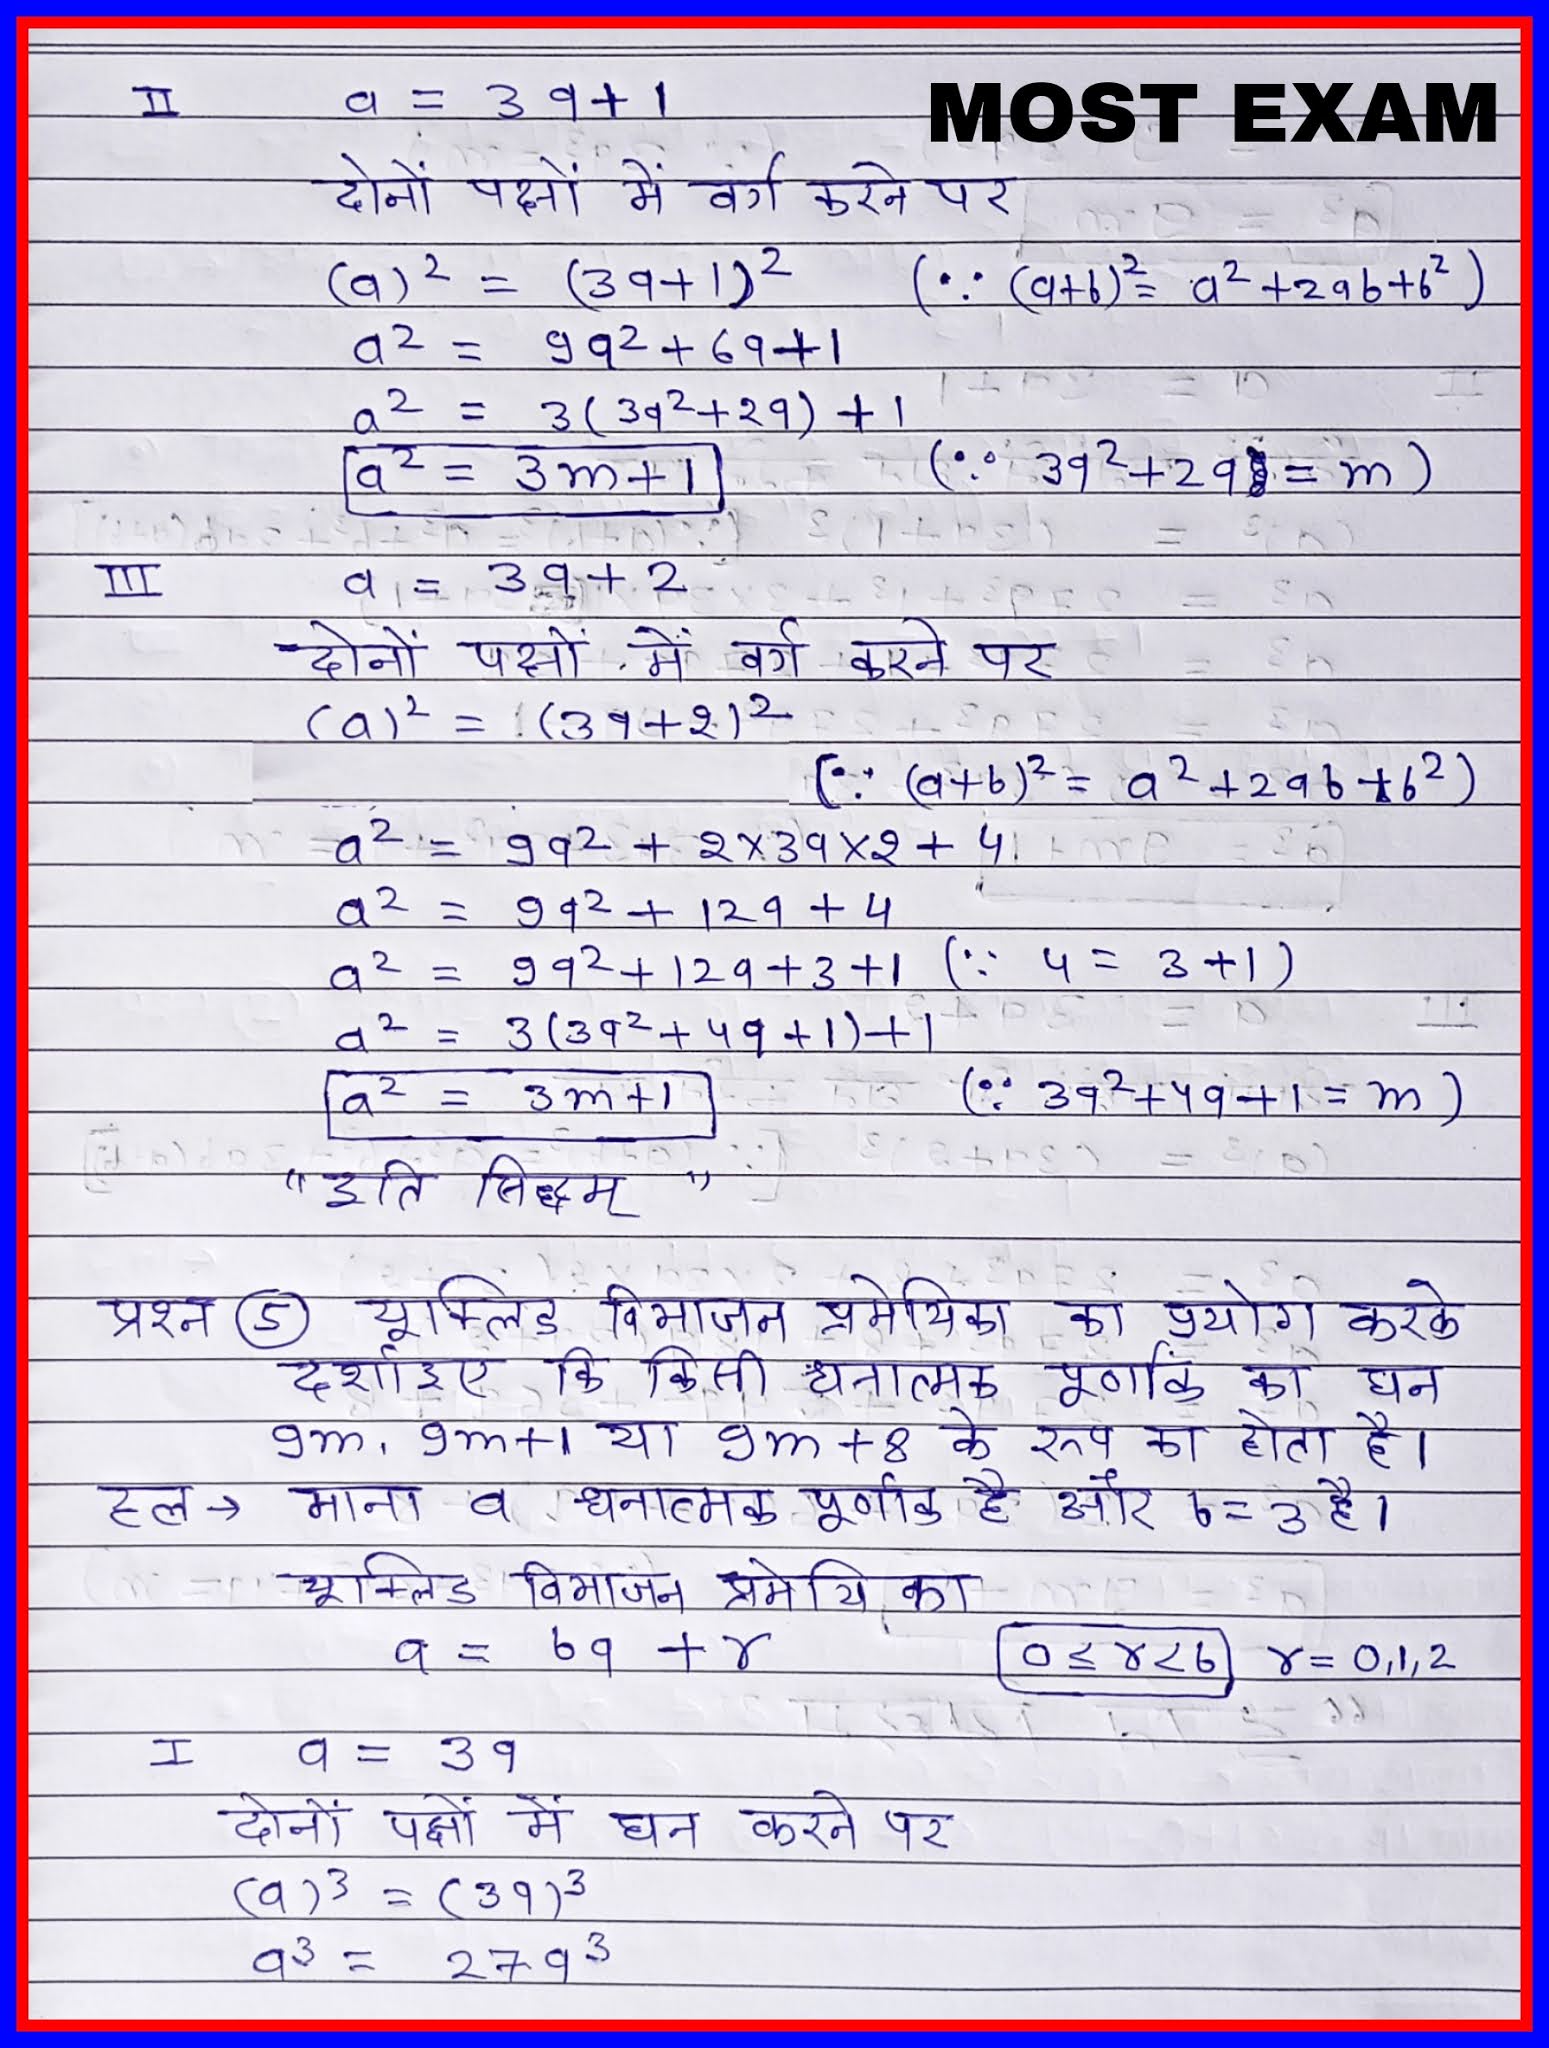 MOST EXAM
II a = 3q+1
दोनों पक्षों में वर्ग करने पर
(a)² = (3q+1)² (∵ (a+b)² = a²+2ab+b²)
a² = 9q²+6q+1
a² = 3(3q²+2q)+1
a² = 3m+1 (∵ 3q²+2q = m)
III a = 3q+2
दोनों पक्षों में वर्ग करने पर
(a)² = (3q+2)²
(∵ (a+b)² = a²+2ab+b²)
a² = 9q² + 2×3q×2 + 4
a² = 9q² + 12q + 4
a² = 9q²+12q+3+1 (∵ 4 = 3+1)
a² = 3(3q²+4q+1)+1
a² = 3m+1 (∵ 3q²+4q+1 = m)
"इति सिद्धम्"
प्रश्न 5 यूक्लिड विभाजन प्रमेयिका का प्रयोग करके
दर्शाइए कि किसी धनात्मक पूर्णांक का घन
9m, 9m+1 या 9m+8 के रूप का होता है।
हल → माना a धनात्मक पूर्णांक है और b=3 है।
यूक्लिड विभाजन प्रमेयिका
a = bq + r 0≤r<b r=0,1,2
I a = 3q
दोनों पक्षों में घन करने पर
(a)³ = (3q)³
a³ = 27q³